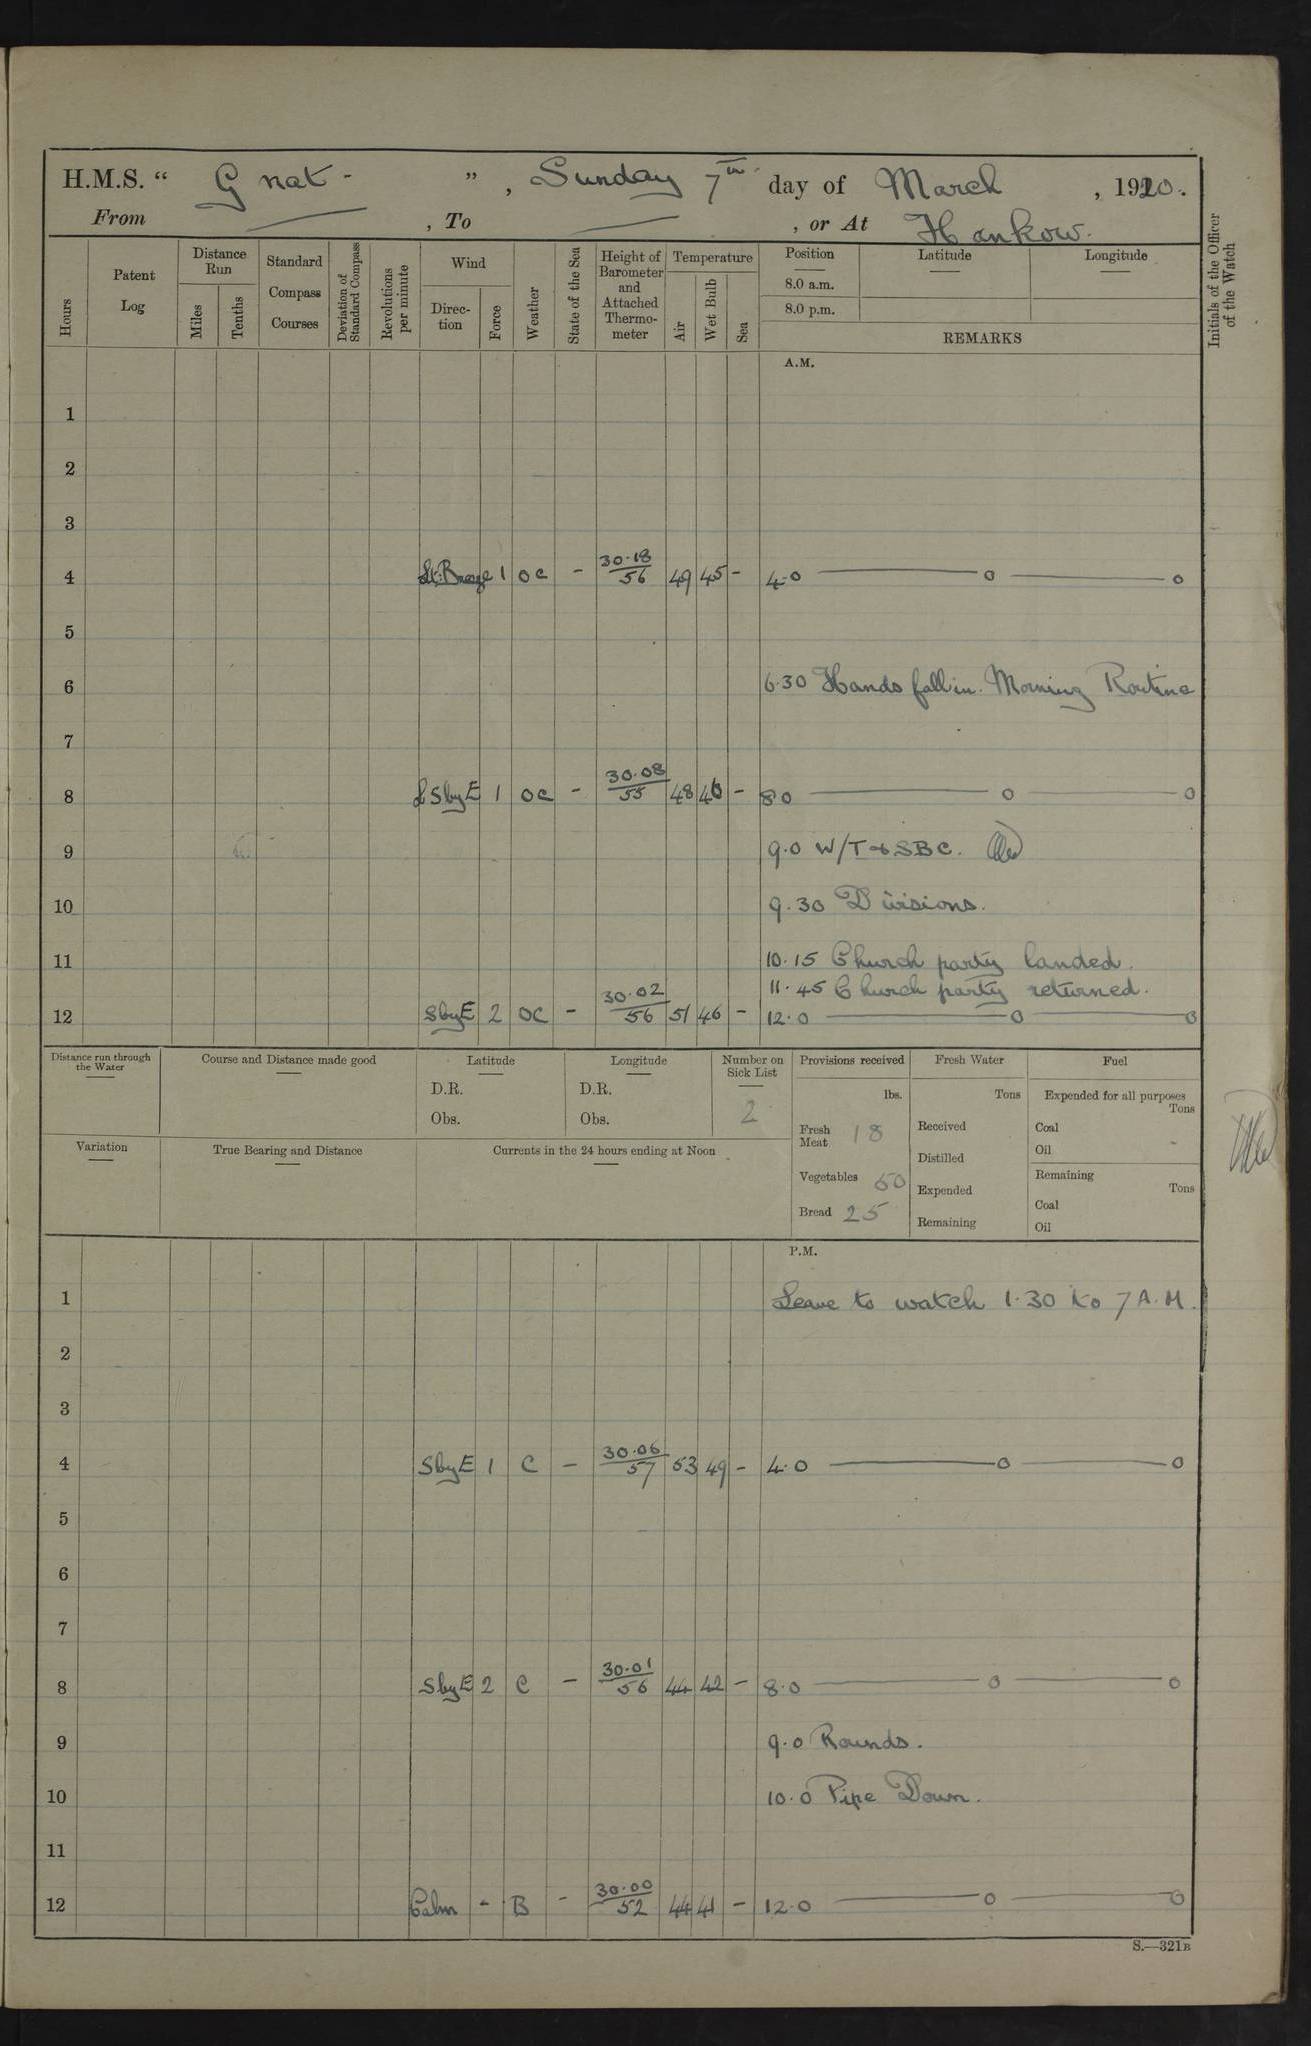 H.M.S. “ Gnat - ” , Sunday 7th day of March , 1920.
From — , To — , or At Hankow.
Hours
Patent Log
Distance Run
Miles
Tenths
Standard Compass Courses
Deviation of Standard Compass
Revolutions per minute
Wind
Direction
Force
Weather
State of the Sea
Height of Barometer and Attached Thermometer
Temperature
Air
Wet Bulb
Sea
Position
8.0 a.m.
8.0 p.m.
Latitude
Longitude
REMARKS
Initials of the Officer of the Watch
A.M.
1
2
3
4 Lt. Breeze 1 OC - 30.18/56 49 45 - 4.0 — o — o
5
6 6.30 Hands fall in. Morning Routine
7
8 S by E 1 OC - 30.08/55 48 46 - 8.0 — o — o
9 9.0 W/T & SBC.
10 9.30 Divisions.
11 10.15 Church party landed.
11.45 Church party returned.
12 S by E 2 OC - 30.02/56 51 46 - 12.0 — o — o
Distance run through the Water
Course and Distance made good
Latitude
D.R.
Obs.
Longitude
D.R.
Obs.
Number on Sick List
2
Provisions received
lbs.
Fresh Meat 18
Vegetables 50
Bread 25
Fresh Water
Tons
Received
Distilled
Expended
Remaining
Fuel
Expended for all purposes
Tons
Coal
Oil -
Remaining
Tons
Coal
Oil
Variation
True Bearing and Distance
Currents in the 24 hours ending at Noon
P.M.
1 Leave to watch 1.30 to 7 A.M.
2
3
4 S by E 1 C - 30.06/57 53 49 - 4.0 — o — o
5
6
7
8 S by E 2 C - 30.01/56 44 42 - 8.0 — o — o
9 9.0 Rounds.
10 10.0 Pipe Down.
11
12 Calm - B - 30.00/52 44 41 - 12.0 — o — o
S.—321B